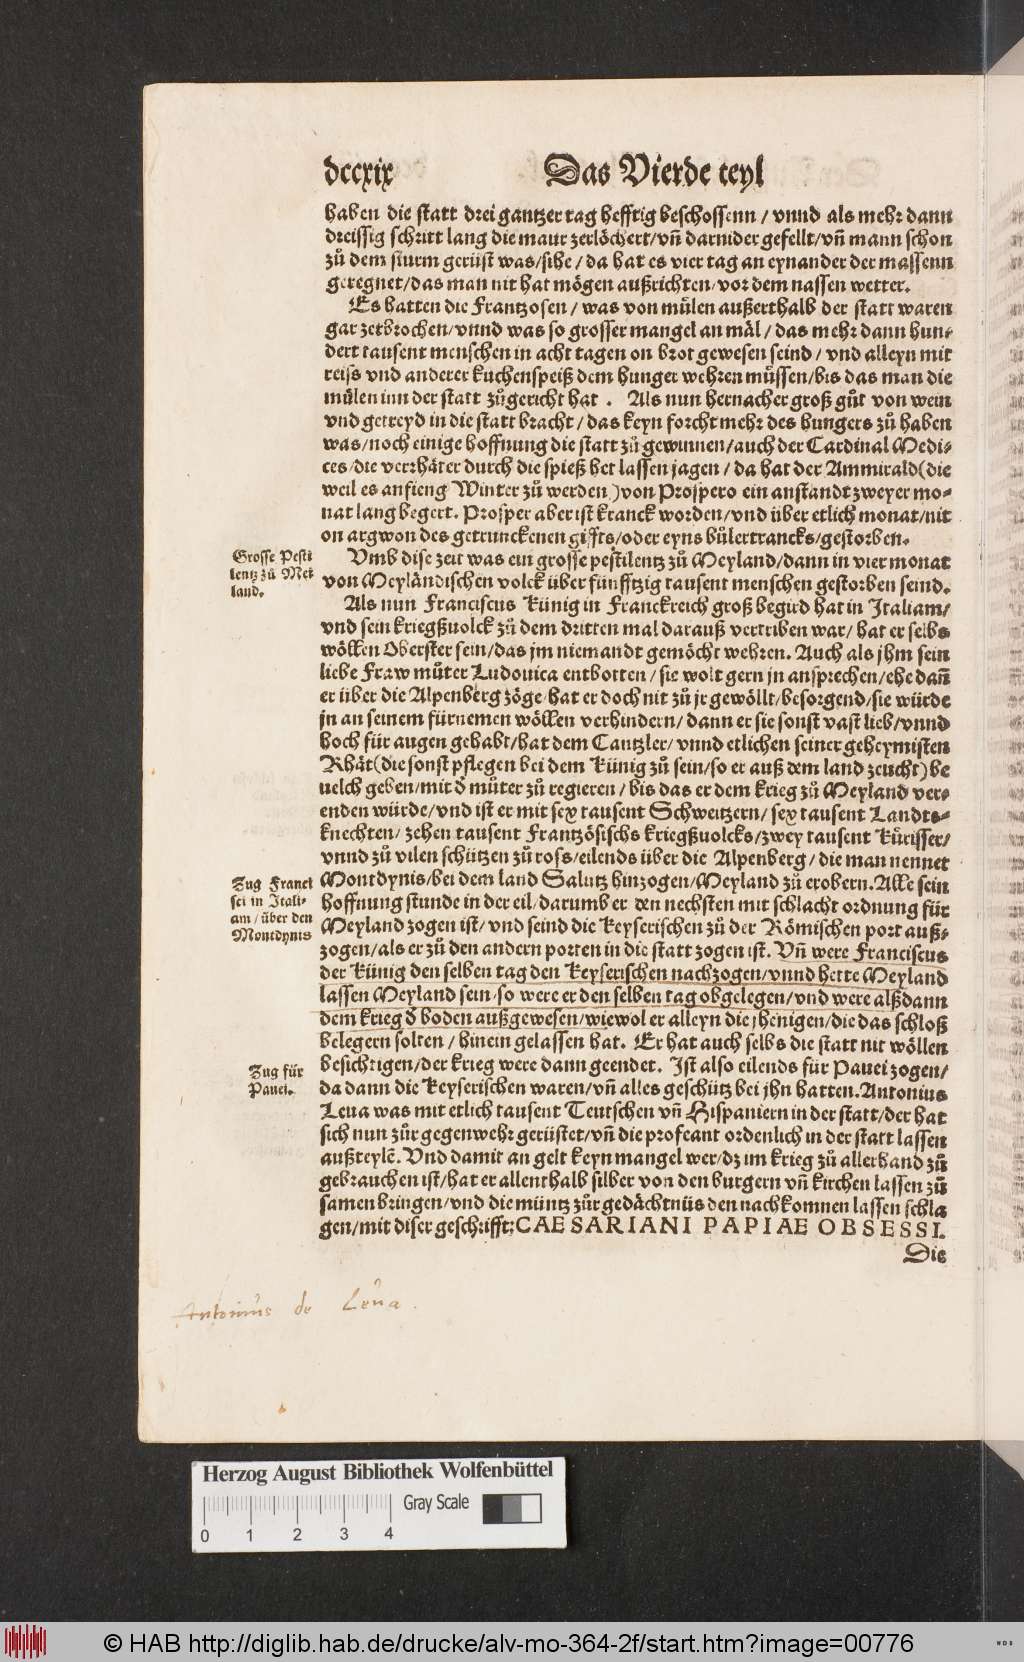 dccxix Das Vierde teyl
haben die statt drei gantzer tag hefftig beschossenn / vnnd als mehr dann
dreissig schritt lang die maur zerlöchert/vñ darnider gefellt/vñ mann schon
zů dem sturm gerüst was/sihe / da hat es vier tag an eynander der massenn
geregnet/das man nit hat mögen außrichten/vor dem nassen wetter.
Es hatten die Frantzosen / was von mülen außerthalb der statt waren
gar zerbrochen/vnnd was so grosser mangel an mäl / das mehr dann hun-
dert tausent menschen in acht tagen on brot gewesen seind / vnd alleyn mit
reiss vnd anderer kuchenspeiß dem hunger wehren müssen/bis das man die
mülen inn der statt zůgericht hat . Als nun hernacher groß gůt von wein
vnd getreyd in die statt bracht / das keyn forcht mehr des hungers zů haben
was/noch einige hoffnung die statt zů gewinnen/auch der Cardinal Medi-
ces/die verrhäter durch die spieß het lassen jagen / da hat der Ammirald(die
weil es anfieng Winter zů werden )von Prospero ein anstandt zweyer mo-
nat lang begert. Prosper aber ist kranck worden/vnd über etlich monat/nit
on argwon des getrunckenen giffts/oder eyns bůlertrancks/gestorben.
Grosse Pesti
lentz zů Mei
land.
Vmb dise zeit was ein grosse pestilentz zů Meyland/dann in vier monat
von Meyländischen volck über fünfftzig tausent menschen gestorben seind.
Als nun Franciscus Künig in Franckreich groß begird hat in Italiam/
vnd sein kriegßuolck zů dem dritten mal darauß vertriben war/ hat er selbs
wöllen Oberster sein/das jm niemandt gemöcht wehren. Auch als jhm sein
liebe Fraw můter Ludouica entbotten / sie wolt gern jn ansprechen/ehe dañ
er über die Alpenberg zöge/hat er doch nit zů jr gewöllt/besorgend/sie würde
jn an seinem fürnemen wöllen verhindern/ dann er sie sonst vast lieb/vnnd
hoch für augen gehabt/hat dem Cantzler/ vnnd etlichen seiner geheymisten
Rhät(die sonst pflegen bei dem Künig zů sein/so er auß dem land zeucht)be
uelch geben/mit ð můter zů regieren / bis das er dem krieg zů Meyland ver-
enden würde/vnd ist er mit sex tausent Schweitzern/ sex tausent Landts-
knechten/ zehen tausent Frantzösischs kriegßuolcks/zwey tausent Kürisser/
vnnd zů vilen schützen zů ross/eilends über die Alpenberg / die man nennet
Zug Franci
sci in Itali-
am / über den
Montdynis
Montdynis/bei dem land Salutz hinzogen/Meyland zů erobern. Alle sein
hoffnung stunde in der eil/darumb er den nechsten mit schlacht ordnung für
Meyland zogen ist/ vnd seind die Keyserischen zů der Römischen port auß-
zogen/als er zů den andern porten in die statt zogen ist. Vñ were Franciscus
der Künig den selben tag den Keyserischen nachzogen/vnnd hette Meyland
lassen Meyland sein/so were er den selben tag obgelegen/vnd were alßdann
dem krieg ð boden außgewesen/wiewol er alleyn die jhenigen/die das schloß
belegern solten / hinein gelassen hat. Er hat auch selbs die statt nit wöllen
besichtigen/der krieg were dann geendet. Ist also eilends für Pauei zogen/
Zug für
Pauei.
da dann die Keyserischen waren/vñ alles geschütz bei jhn hatten. Antonius
Leua was mit etlich tausent Teutschen vñ Hispaniern in der statt/der hat
sich nun zůr gegenwehr gerüstet/vñ die profeant ordenlich in der statt lassen
außteylẽ. Vnd damit an gelt keyn mangel wer/dz im krieg zů allerhand zů
gebrauchen ist/hat er allenthalb silber von den burgern vñ kirchen lassen zů
samen bringen/vnd die müntz zůr gedächtnüs den nachkomnen lassen schla
gen/mit diser geschrifft: CAESARIANI PAPIAE OBSESSI.
Die
Antonius de Leua.
Herzog August Bibliothek Wolfenbüttel
Gray Scale
0 1 2 3 4
© HAB http://diglib.hab.de/drucke/alv-mo-364-2f/start.htm?image=00776